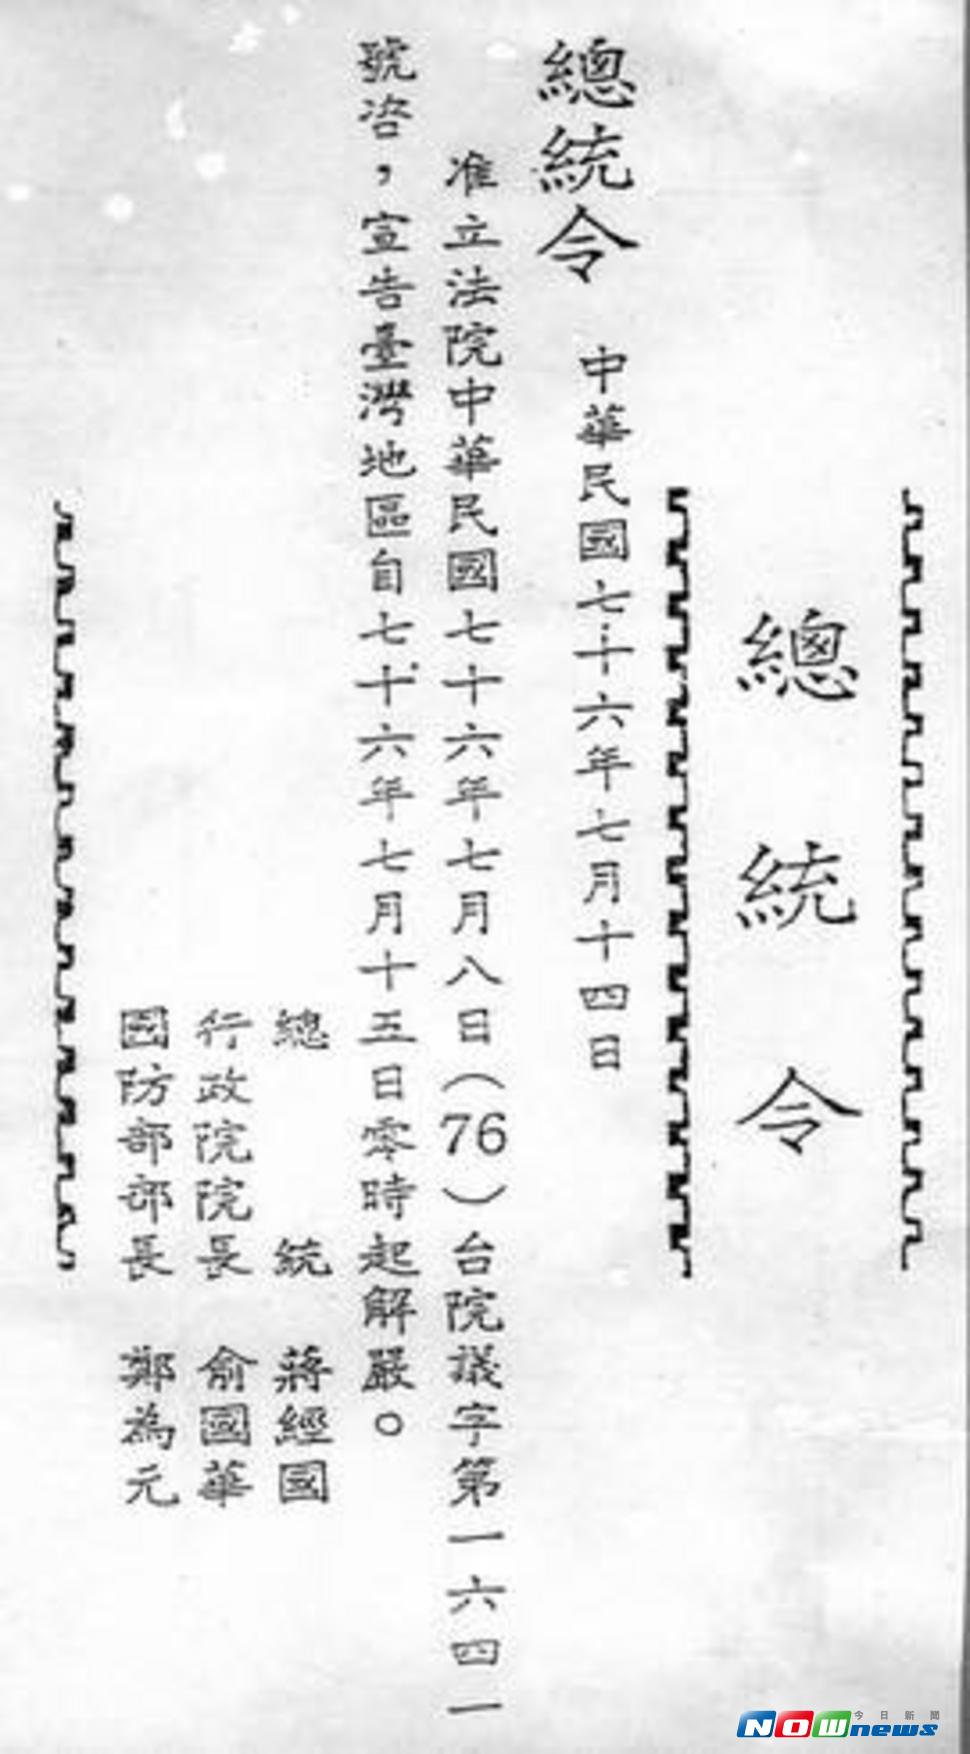 總統令
總統令 中華民國七十六年七月十四日
准立法院中華民國七十六年七月八日（76）台院議字第一六四一
號咨，宣告臺灣地區自七十六年七月十五日零時起解嚴。
總統 蔣經國
行政院院長 俞國華
國防部部長 鄭為元
今日新聞
NOWnews